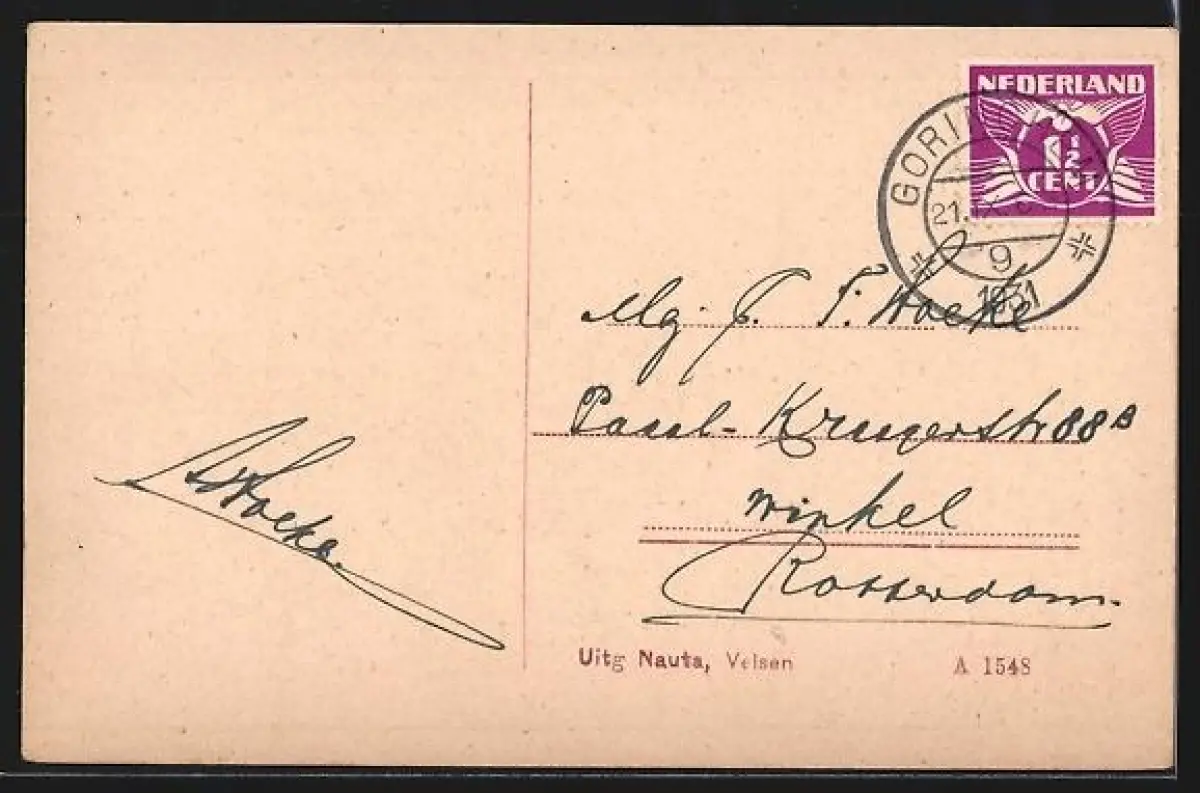 NEDERLAND
1½
CENT
GORIN
21. IX.
9
1931
F. Hoeke
Paul-Krugerstr 88B
Winkel
Rotterdam.
Hoeke
Uitg Nauta, Velsen A 1548